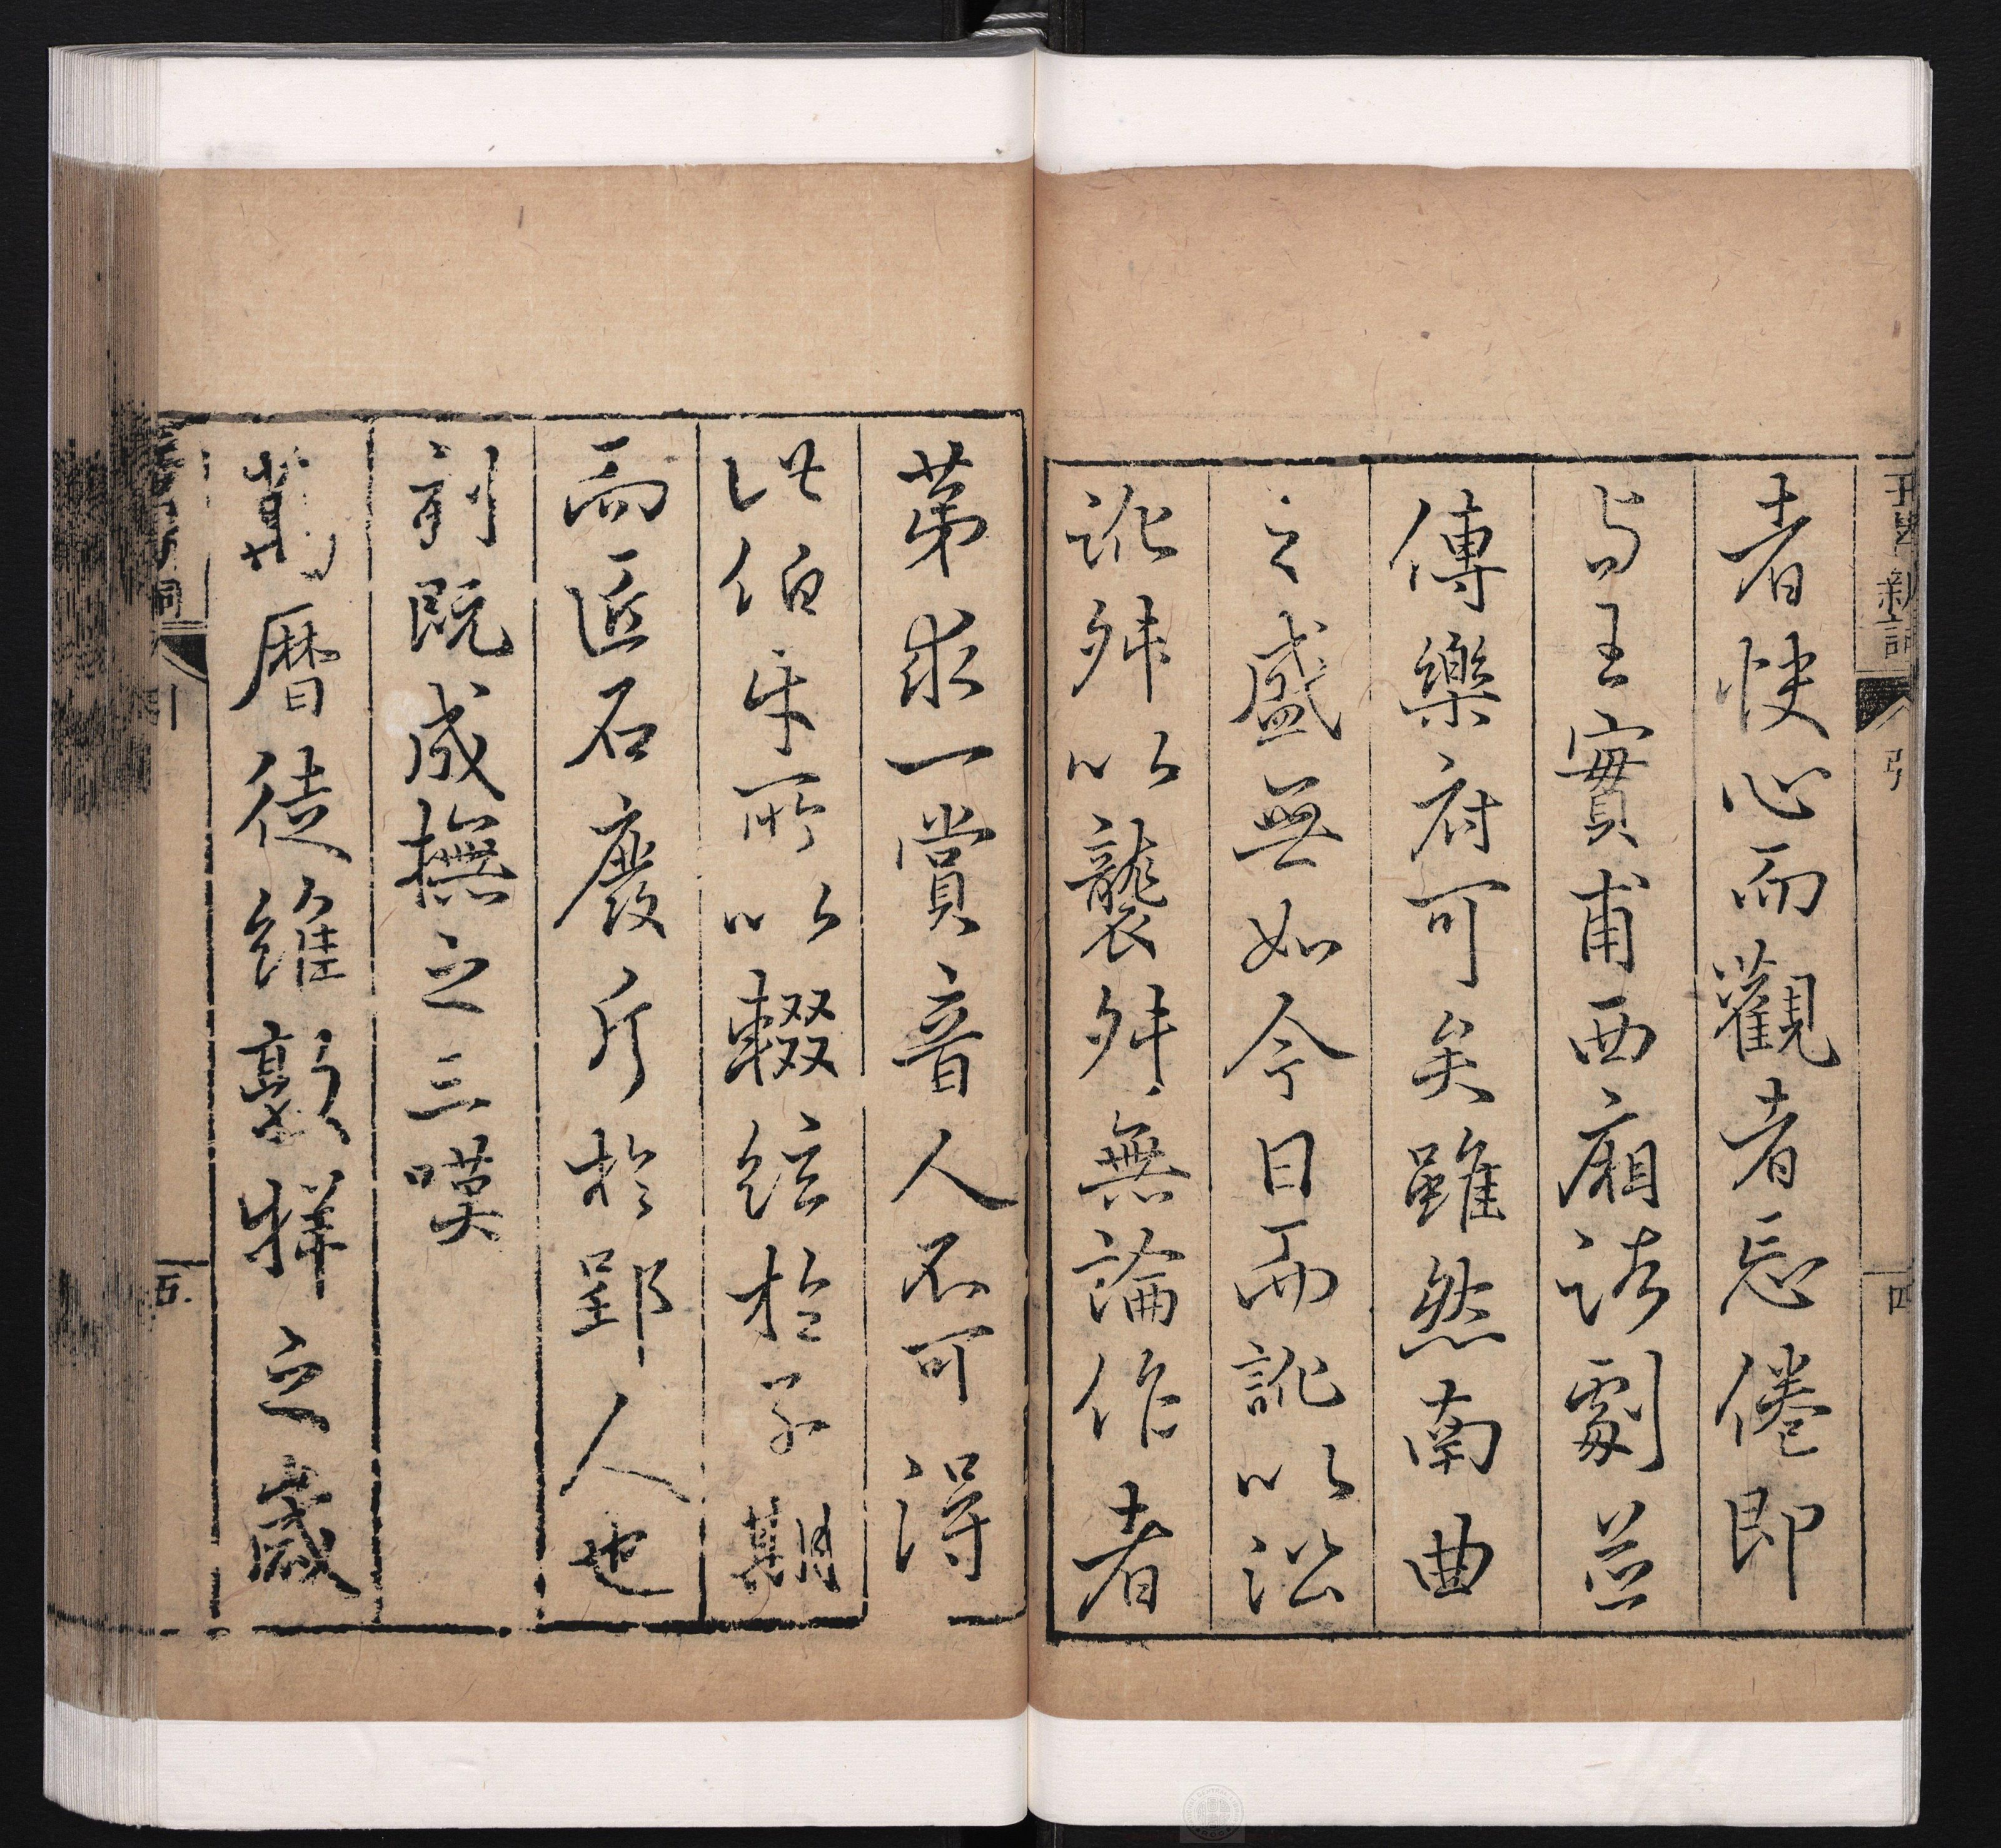 引 四
者快心而觀者忘倦即
与王實甫西廂諸劇並
傳樂府可矣雖然南曲
之盛無如今日而訛以沿
訛舛以襲舛無論作者
第求一賞音人不可得
此伯牙所以輟絃於子期
而匠石廢斤於郢人也
刻既成撫之三嘆
萬曆徒維敦牂之歲
五